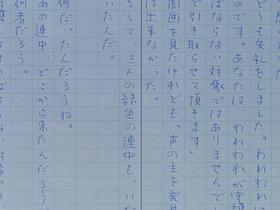 どうも失礼をしました。われわれは
のです。あなたは、われわれが守護
ばならない対象ではありませんでし
で引き取らせて頂きます』
周囲を見たけれども、声の主を発見
は出来なかった。
そして、三人の緑色の連中も、いな
いんだ。
何だ。たんだろうね。
あの連中、どこから来たんだろう
何者だろう。